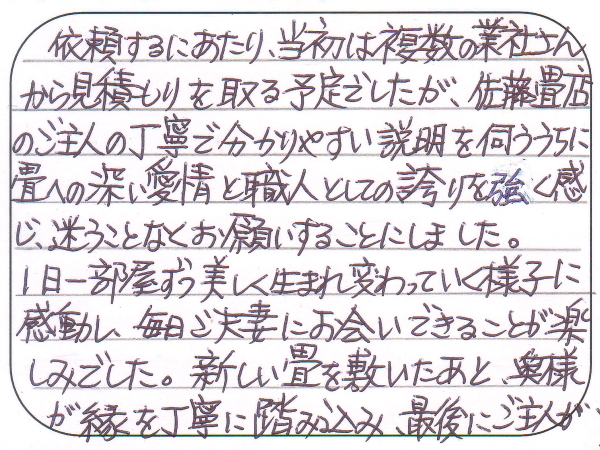 依頼するにあたり、当初は複数の業社さん
から見積もりを取る予定でしたが、佐藤畳店
のご主人の丁寧で分かりやすい説明を伺ううちに
畳への深い愛情と職人としての誇りを強く感
じ、迷うことなくお願いすることにしました。
1日一部屋ずつ美しく生まれ変わっていく様子に
感動し、毎日ご夫妻にお会いできることが楽
しみでした。新しい畳を敷いたあと、奥様
が縁を丁寧に踏み込み、最後にご主人が